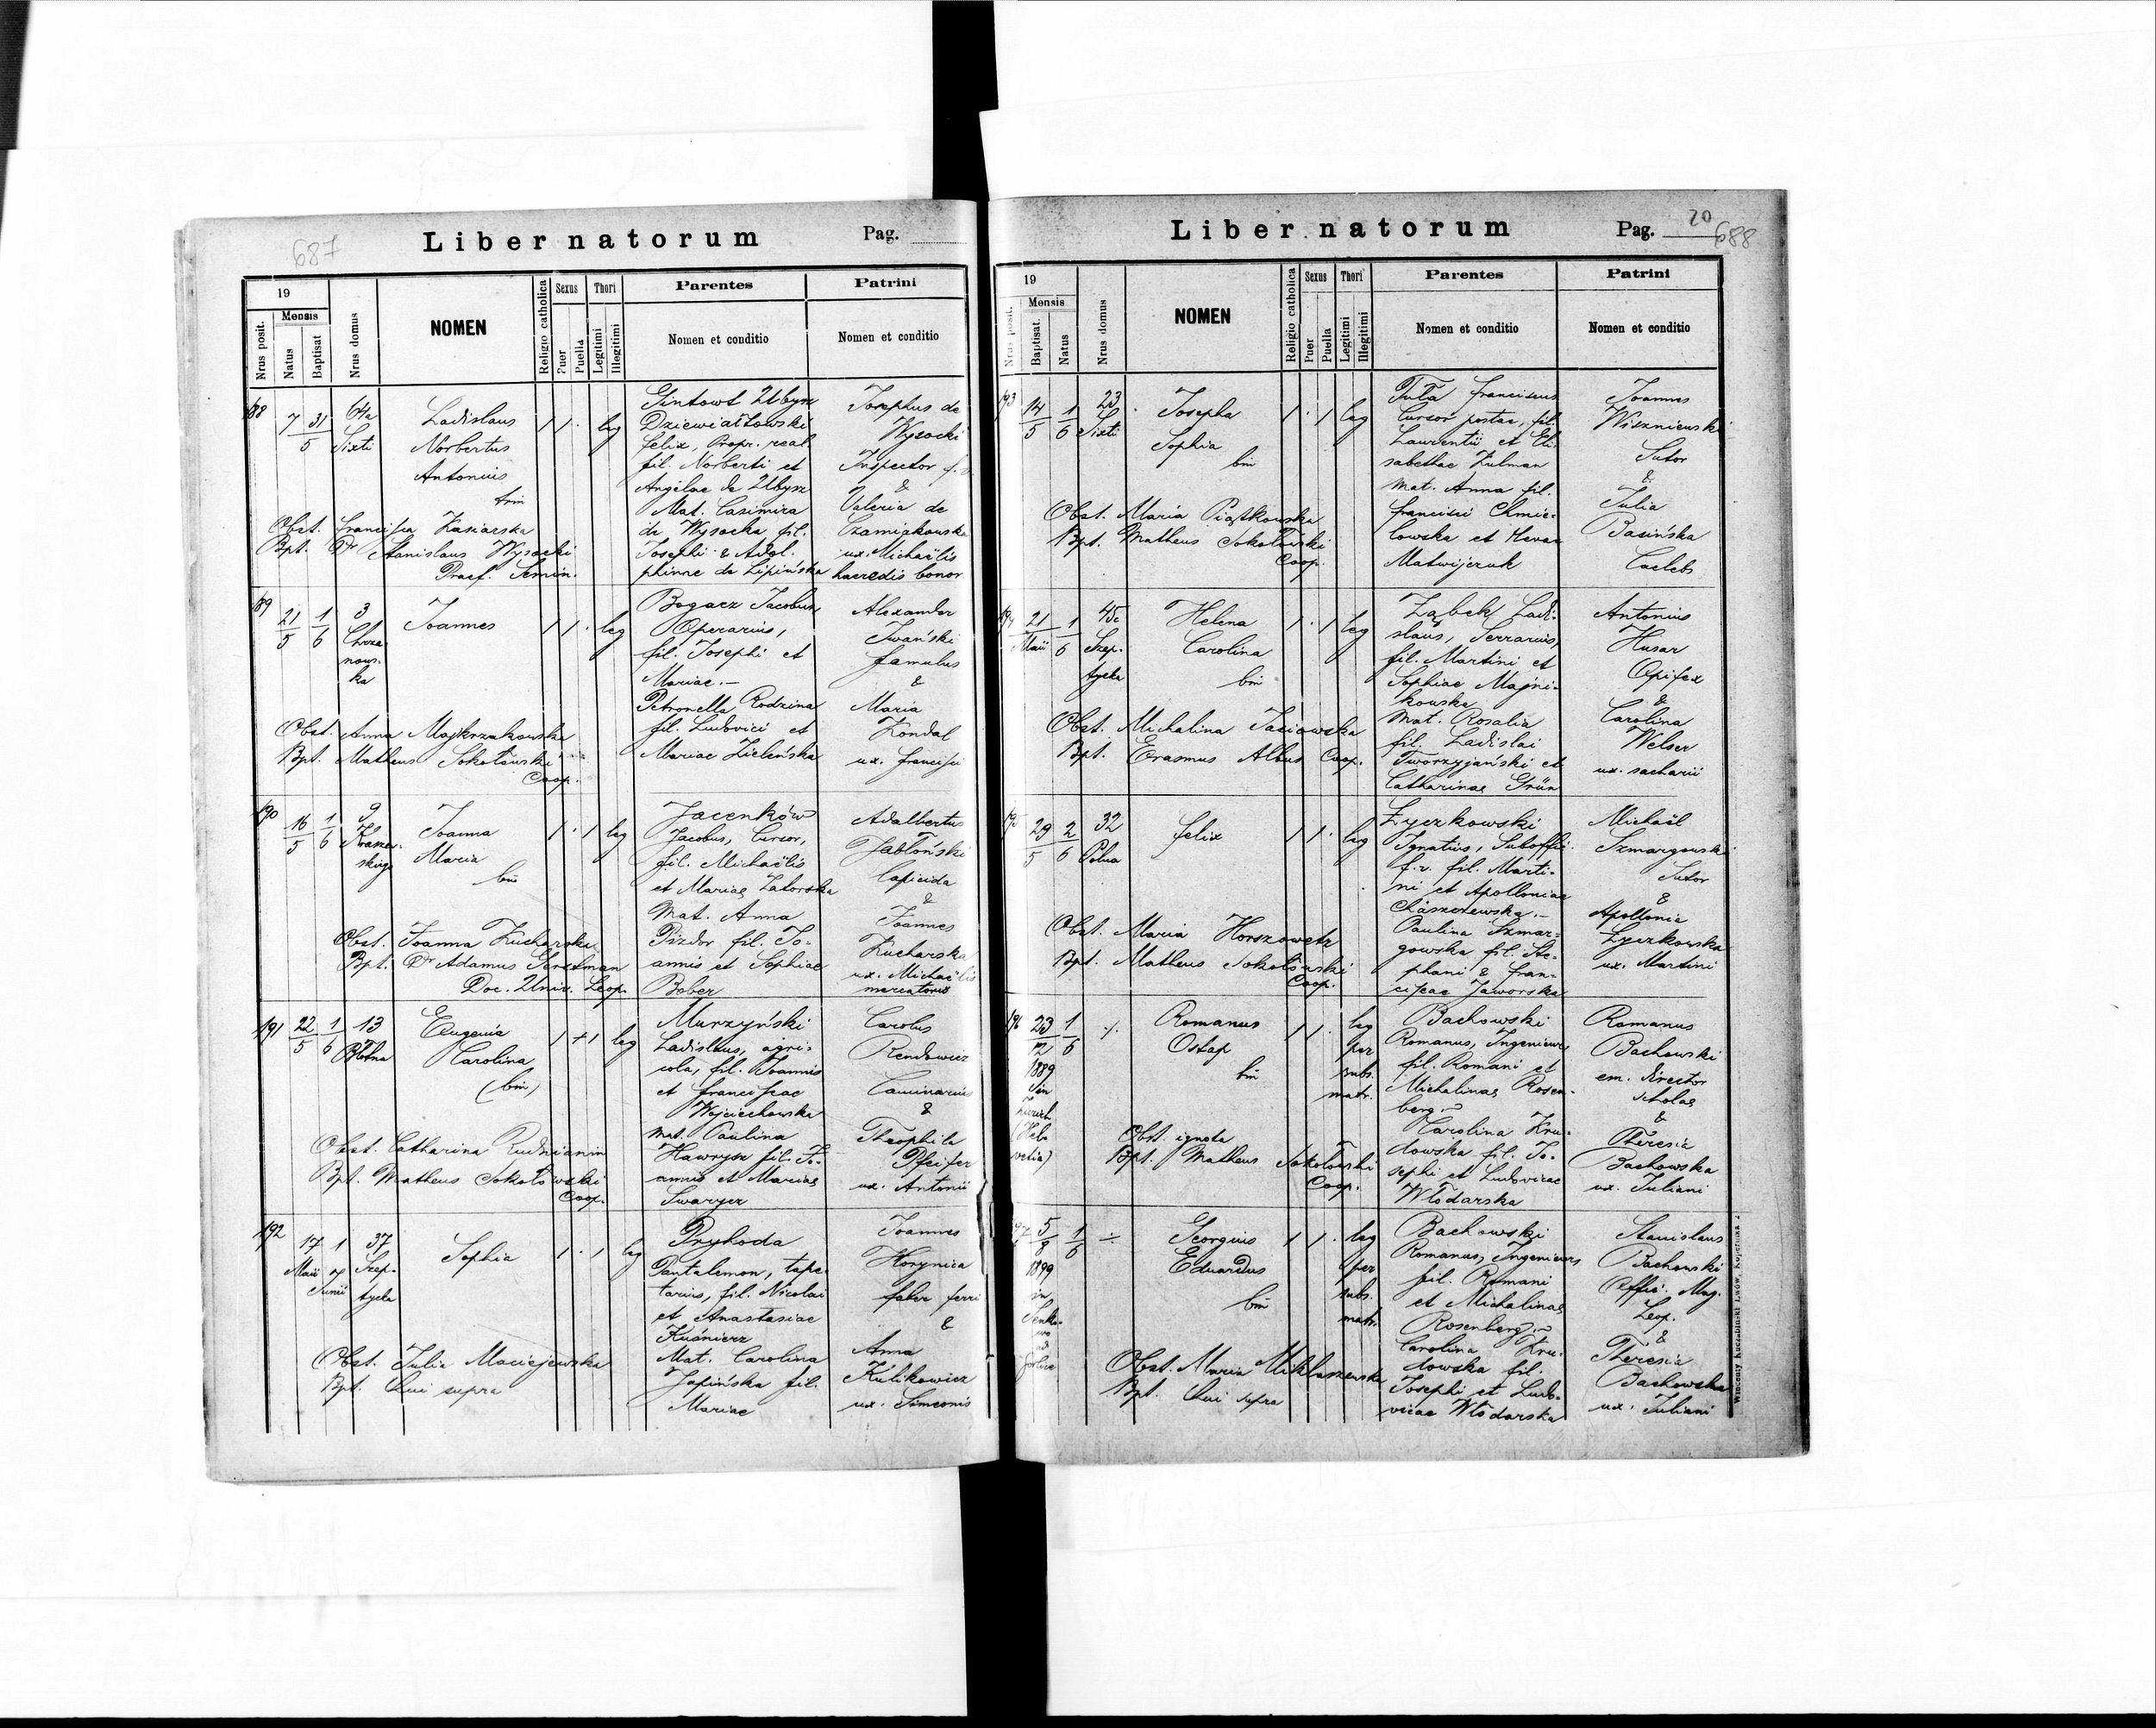 687
Liber natorum
Pag.
19
Nrus posit.
Mensis
Natus
Baptisat
Nrus domus
NOMEN
Religio catholica
Sexus
Puer
Puella
Thori
Legitimi
Illegitimi
Parentes
Nomen et conditio
Patrini
Nomen et conditio
188
7/5 31
64a
Sixti
Ladislaus
Norbertus
Antonius
trin
1 1 · leg
Obst. Francisca Kasiarska
Bpt. Dr Stanislaus Wysocki
Praef. Semin.
Gintowt Ubysz
Dziewiałtowski
Felix, Propr. real.
fil. Norberti et
Angelae de Ubysz
Mat. Casimira
de Wysocka fil.
Josephi & Adol-
phinae de Lipińska
Josephus de
Wysocki
Inspector
&
Valeria de
Czamiakowska
ux. Michaëlis
haeredis bonor
189
21/5 1/6
3
Chrza-
nows-
ka
Joannes
1 1 · leg
Obst. Anna Majkrzakowska
Bpt. Matheus Sokołowski
Coop.
Bogacz Jacobus,
Operarius,
fil. Josephi et
Mariae.—
Petronella Rodzina
fil. Ludovici et
Mariae Zielińska
Alexander
Iwański
famulus
&
Maria
Zondal
ux. Francisci
190
16/5 1/6
9
Kraszew-
skiego
Joanna
Maria
bin
1 · 1 leg
Obst. Joanna Kucharska
Bpt. Dr Adamus Gerstman
Doc. Univ. Leop.
Jacenków
Jacobus, Cursor,
fil. Michaëlis
et Mariae Zatorska
Mat. Anna
Pizdor fil. Jo-
annis et Sophiae
Beber
Adalbertus
Jabłoński
lapicida
&
Joannes
Kucharska
ux. Michaëlis
mercatoris
191
22/5 1/6
13
Eugenia
Carolina
(bin)
1 + 1 leg
Obst. Catharina Rudnianin
Bpt. Matheus Sokołowski
Coop.
Murzyński
Ladislaus, agri-
cola, fil. Joannis
et Franciscae
Wojciechowska
Mat. Paulina
Hawrysz fil. Jo-
annis et Mariae
Swaryez
Carolus
Rendowicz
Caminarius
&
Theophila
Pfeifer
ux. Antonii
192
17 1
Maii Junii
37
Szep-
tycka
Sophia
1 · 1 leg
Obst. Julia Maciejewska
Bpt. Qui supra
Pryhoda
Pantalemon, tape-
tarius, fil. Nicolai
et Anastasiae
Kuśnierz
Mat. Carolina
Japińska fil.
Mariae
Joannes
Horynica
faber ferri
&
Anna
Kulikowicz
ux. Simeonis
Liber natorum
Pag. 20
688
19
Nrus posit.
Mensis
Baptisat.
Natus
Nrus domus
NOMEN
Religio catholica
Sexus
Puer
Puella
Thori
Legitimi
Illegitimi
Parentes
Nomen et conditio
Patrini
Nomen et conditio
193
14/5 1/6
23
Sixti
Josepha
Sophia
bin
1 · 1 leg
Obst. Maria Piątkowska
Bpt. Matheus Sokołowski
Coop.
Tuła Franciscus
Cursor postae, fil.
Laurentii et Eli-
sabethae Zulman
Mat. Anna fil.
Francisci Chmie-
lowska et Hevae
Matwijczuk
Joannes
Wiszniewski
Sutor
&
Julia
Basińska
Caelebs
194
21 1/6
Maii
45c
Szep-
tycka
Helena
Carolina
bin
1 · 1 leg
Obst. Michalina Jasiowska
Bpt. Erasmus Albus Coop.
Ząbek Ladi-
slaus, Serrarius,
fil. Martini et
Sophiae Majni-
kowska
Mat. Rosalia
fil. Ladislai
Tworzyjański et
Catharinae Grün
Antonius
Husar
Opifex
&
Carolina
Welser
ux. sacharii
195
29/5 2/6
32
Polna
Felix
1 1 · leg
Obst. Maria Horszowetz
Bpt. Matheus Sokołowski
Coop.
Łyczkowski
Ignatius, Suboffic.
f.v. fil. Marti-
ni et Apolloniae
Paulina Szmar-
gowska fil. Ste-
phani & Fran-
ciscae Jaworska
Michaël
Szmargowski
Sutor
&
Apollonia
Łyczkowska
ux. Martini
196
23/12 1/6
1889
in
Zürich
(Hel-
vetia)
·/·
Romanus
Ostap
bin
1 1 · leg
per
subs.
matr.
Obst. ignota
Bpt. Matheus Sokołowski
Coop.
Bachowski
Romanus, Ingenieurs
fil. Romani et
Michalinae Rosen-
berg.
Carolina Kru-
dowska fil. Jo-
sephi et Ludovicae
Włodarska
Romanus
Bachowski
em. director
scholae
&
Theresia
Bachowska
ux. Juliani
197
5/8 1/6
1899
in
·/·
Georgius
Eduardus
bin
1 1 · leg
per
subs.
matr.
Obst. Maria Miklaszewska
Bpt. Qui supra
Bachowski
Romanus, Ingenieurs
fil. Romani
et Michalinae
Rosenberg.
Carolina Kru-
dowska fil.
Josephi et Ludo-
vicae Włodarska
Stanislaus
Bachowski
Offic. Mag.
Leop.
&
Theresia
Bachowska
ux. Juliani